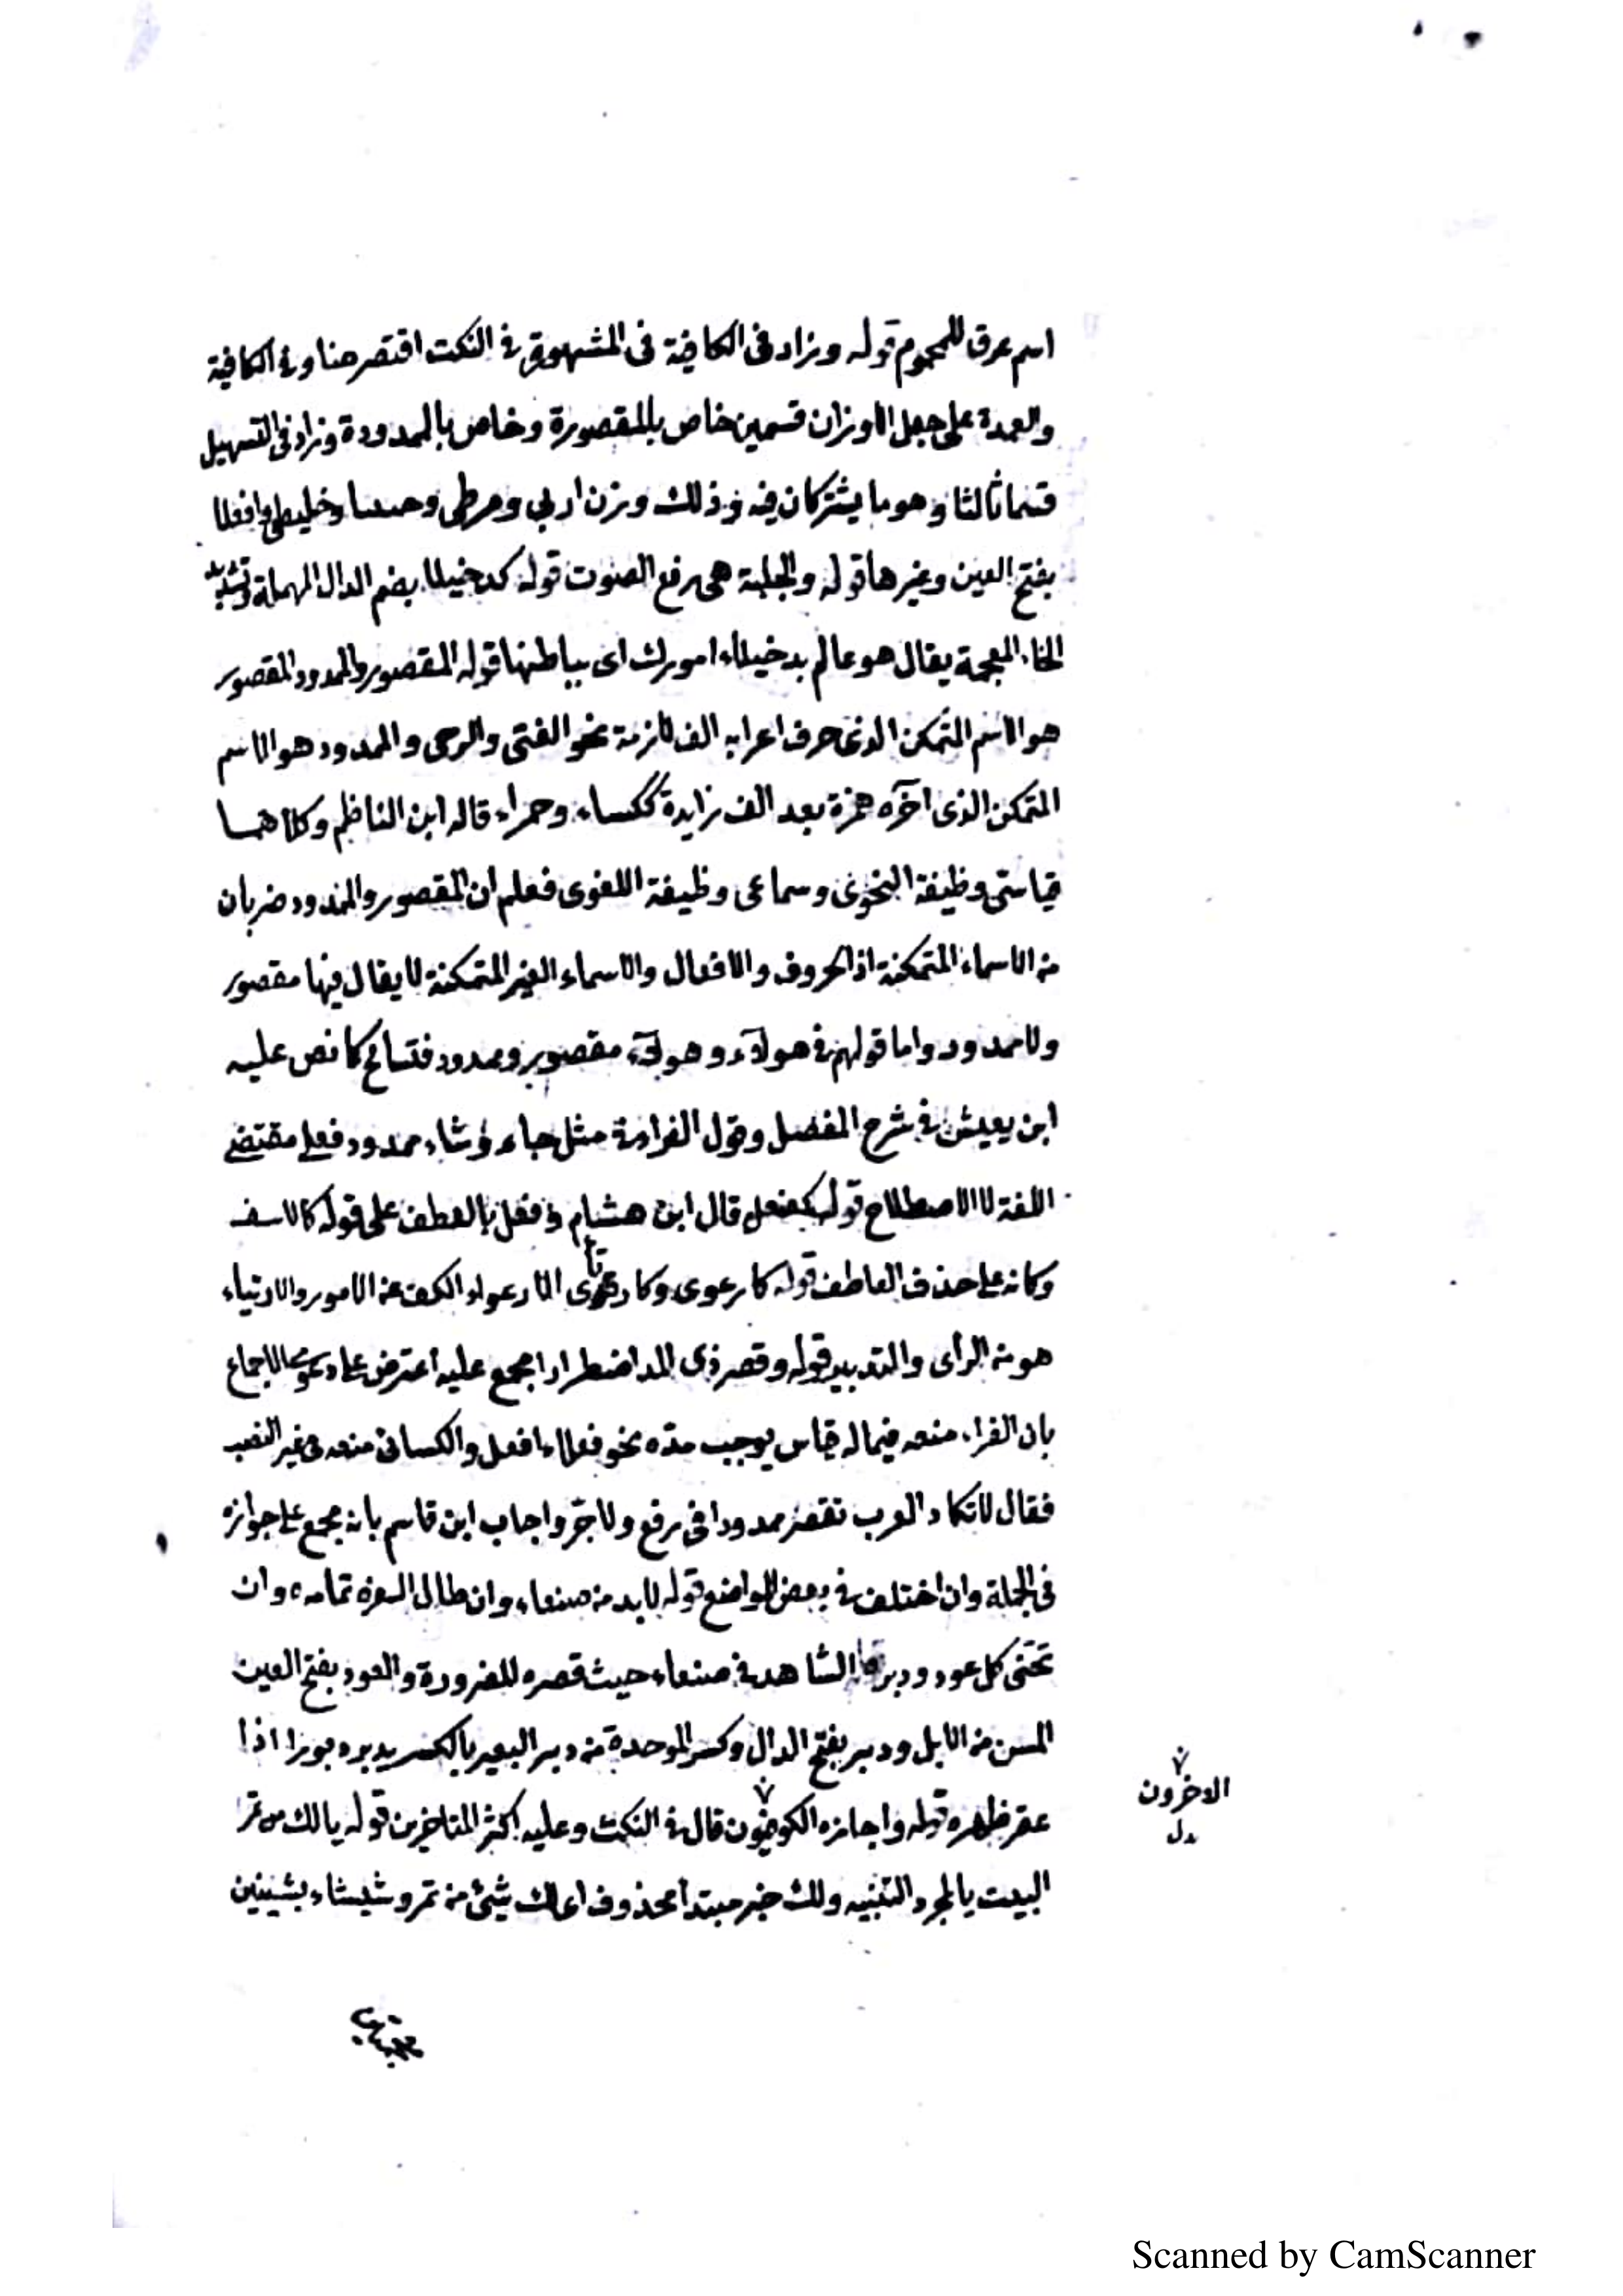 اسم عرق للمحموم قوله وزاد فى الكافية فى المشهورة فى النكت اقتصر هنا وفى الكافية
والعمدة على جعل الاوزان قسمين خاص بالمقصورة وخاص بالممدودة وزاد فى التسهيل
قسما ثالثا وهو ما يشتركان فيه وذلك وزن اربى ومرطى و وخليطى وافعلا
بفتح العين وغيرها قوله والجلبة هى رفع الصوت قوله كدخيلا بضم الدال المهملة وتشديد
الخاء المعجمة يقال هو عالم بدخيلاء امورك اى بباطنها قوله المقصور والممدود المقصور
هو الاسم المتمكن الذى حرف اعرابه الف لازمة نحو الفتى والرحى والممدود هو الاسم
المتمكن الذى اخره همزة بعد الف زايدة ككساء وحمراء قاله ابن الناظم وكلاهما
قياسى وظيفة النحوى وسماعى وظيفة اللغوى فعلم ان المقصور والممدود ضربان
من الاسماء المتمكنة اذ الحروف والافعال والاسماء الغير المتمكنة لا يقال فيها مقصور
ولا ممدود واما قولهم فى هولاء وهولآء مقصور وممدود فتسامح كما نص عليه
ابن يعيش فى شرح المفصل وقول القراء فى مثل جاء وشاء ممدود فعلى مقتضى
اللغة لا الاصطلاح قوله كفعل قال ابن هشام وفعل بالعطف على قوله كالاسف
وكانه على حذف العاطف قوله كارعوى وكارتأى الارعواء الكف عن الامور والارتياء
هو من الراى والتدبير قوله وقصر ذى المد اضطرارا مجمع عليه اعترض على دعوى الاجماع
بان الفراء منعه فيما له قياس يوجب مده نحو فعلاء افعل والكسائى منعه فى غير النصب
فقال لا تكاد العرب تقصر ممدودا فى رفع ولا جر واجاب ابن قاسم بانه مجمع على جوازه
فى الجملة وان اختلف فى بعض المواضع قوله لابد من صنعاء وان طال السفر تمامه وان
تحنى كل عود ودبر الشاهد فى صنعاء حيث قصره للضرورة والعود بفتح العين
المسن من الابل ودبر بفتح الدال وكسر الموحدة من دبر البعير بالكسر يدبر دبورا اذا
عقر ظهره قوله واجازه الكوفيون قال فى النكت وعليه اكثر المتاخرين قوله يالك من تمر
البيت يا لمجرد التنبيه ولك خبر مبتدأ محذوف اى لك شىء من تمر وشيشاء بشينين
الاخرون
بدل